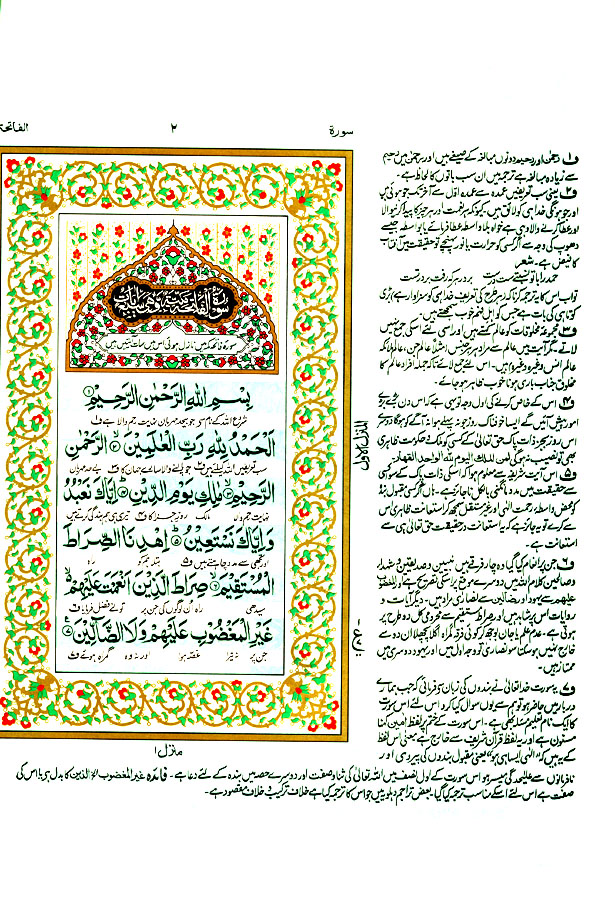 الفاتحة
٢
سورة
سورۃ الفاتحۃ مکیۃ وھی سبع آیات
سورۂ فاتحہ مکہ میں نازل ہوئی اور اس میں سات آیتیں ہیں
بِسْمِ اللّٰهِ الرَّحْمٰنِ الرَّحِيْمِ
شروع اللہ کے نام سے جو بیحد مہربان نہایت رحم والا ہے ف۱
اَلْحَمْدُ لِلّٰهِ رَبِّ الْعٰلَمِيْنَ ۙ الرَّحْمٰنِ
سب تعریفیں اللہ کے لئے ہیں ف۲ جو پالنے والا سارے جہان کا ف۳ بے حد مہربان
الرَّحِيْمِ ۙ مٰلِكِ يَوْمِ الدِّيْنِ ؕ اِيَّاكَ نَعْبُدُ
نہایت رحم والا مالک روز جزا کا ف۴ تیری ہی ہم بندگی کرتے ہیں
وَاِيَّاكَ نَسْتَعِيْنُ ؕ اِهْدِنَا الصِّرَاطَ
اور تجھی سے مدد چاہتے ہیں ف۵ بتلا ہم کو راہ
الْمُسْتَقِيْمَ ۙ صِرَاطَ الَّذِيْنَ اَنْعَمْتَ عَلَيْهِمْ
سیدھی راہ اُن لوگوں کی جن پر تو نے فضل فرمایا ف۶
غَيْرِ الْمَغْضُوْبِ عَلَيْهِمْ وَلَا الضَّآلِّيْنَ
جن پر نہ تیرا غصہ ہوا اور نہ وہ گمراہ ہوئے ف۷
المنزل الاول
منزل ۱
ف۱ رحمٰن اور رحیم دونوں مبالغہ کے صیغے ہیں اور رحمٰن میں رحیم
سے زیادہ مبالغہ ہے ترجمہ میں ان سب باتوں کا لحاظ ہے۔
ف۲ یعنی سب تعریفیں عمدہ سے عمدہ اوّل سے آخر تک جو ہوئی ہیں
اور جو ہونگی خدا ہی کو لائق ہیں۔ کیونکہ ہر نعمت اور ہر چیز کا پیدا کرنیوالا
اور عطا کرنے والا وہی ہے خواہ بلاواسطہ عطا فرمائے یا بالواسطہ جیسے
دھوپ کی وجہ سے اگر کسی کو حرارت یا نور پہنچے تو حقیقت میں آفتاب
کا فیض ہے۔ شعر
حمد را با تو نسبتے ست درست بر در ہر کہ رفت بر در تست
تو اب اس کا یہ ترجمہ کرنا کہ ہر طرح کی تعریف خدا ہی کو سزاوار ہے، بڑی
کوتاہی کی بات ہے جس کو اہل فہم خوب سمجھتے ہیں۔
ف۳ مجموعہ مخلوقات کو عالم کہتے ہیں اور اسی لئے اس کی جمع نہیں
لاتے۔ مگر آیت میں عالم سے مراد ہر ہر جنس (مثلاً عالم جن، عالم ملائکہ
عالم انس وغیرہ وغیرہ) ہیں۔ اس لئے جمع لائے تاکہ جملہ افراد عالم کا
مخلوق جناب باری ہونا خوب ظاہر ہو جائے۔
ف۴ اس کے خاص کرنے کی اول وجہ تو یہی ہے کہ اس دن بڑے بڑے
امور پیش آئیں گے ایسا خوفناک روز جو نہ پہلے ہوا نہ آگے کو ہو گا دوسرے
اس روز بجز ذات پاک حق تعالیٰ کے کسی کو ملک و حکومت ظاہری
بھی تو نصیب نہ ہوگی لمن الملک الیوم للہ الواحد القھار۔
ف۵ اس آیت شریفہ سے معلوم ہوا کہ اسکی ذات پاک کے سوا کسی
سے حقیقت میں مدد مانگنی بالکل ناجائز ہے۔ ہاں اگر کسی مقبول بندہ
کو محض واسطہ رحمت الٰہی اور غیر مستقل سمجھ کر استعانت ظاہری اس
سے کرے تو یہ جائز ہے کہ یہ استعانت درحقیقت حق تعالیٰ ہی سے
استعانت ہے۔
ف۶ جن پر انعام کیا گیا وہ چار فرقے ہیں نبیین و صدیقین و شہداء
و صالحین کلام اللہ میں دوسرے موقع پر اسکی تصریح ہے اور المغضوب
علیھم سے یہود اور ضالین سے نصاریٰ مراد ہیں۔ دیگر آیات و
روایات اس پر شاہد ہیں اور صراط مستقیم سے محرومی کل دو طرح پر
ہوتی ہے۔ عدم علم یا جان بوجھ کر کوئی فرقہ گمراہ اگلا پچھلا ان دو سے
خارج نہیں ہو سکتا سو نصاریٰ تو وجہ اول میں اور یہود دوسری میں
ممتاز ہیں۔
ف۷ یہ سورت خدا تعالیٰ نے بندوں کی زبان سے فرمائی کہ جب ہمارے
دربار میں حاضر ہو تو ہم سے یوں سوال کیا کرو اس لئے اس سورت
کا ایک نام تعلیم مسئلہ بھی ہے۔ اس سورت کے ختم پر لفظ آمین کہنا
مسنون ہے اور یہ لفظ قرآن شریف سے خارج ہے معنی اس لفظ
کے یہ ہیں کہ "الٰہی ایسا ہی ہو" یعنی مقبول بندوں کی پیروی اور
نافرمانوں سے علیحدگی میسر ہو اس سورت کے اول نصف میں اللہ تعالیٰ کی ثناء و صفت اور دوسرے حصہ میں بندہ کے لئے دعا ہے۔ فائدہ غیر المغضوب الخ الذین کا بدل ہے یا اس کی
صفت ہے اس لئے اسکے مناسب ترجمہ کیا گیا۔ بعض تراجم دہلویہ میں جو اس کا ترجمہ کیا ہے خلاف ترکیب و خلاف مقصود ہے۔